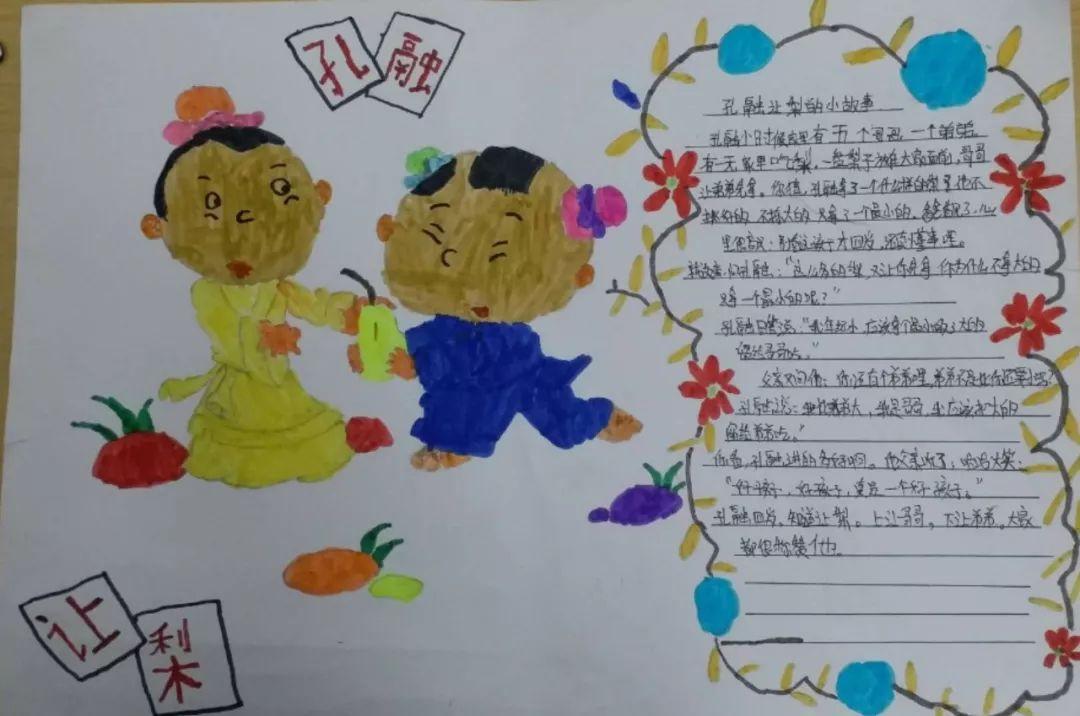 孔融
让梨
孔融让梨的小故事
孔融小时候家里有五个哥哥一个弟弟
有一天家里吃梨。一盘梨子放在大家面前，哥哥
让弟弟先拿。你猜，孔融拿了一个什么样的梨？他不
挑好的，不拣大的，只拿了一个最小的。爸爸看见了，心
里很高兴：别看这孩子才四岁，还真懂事哩。
就故意问孔融："这么多的梨，又让你先拿，你为什么不拿大的
只拿一个最小的呢？"
孔融回答说："我年纪小，应该拿个最小的，大的
留给哥哥吃。"
父亲又问他：你还有个弟弟哩，弟弟不是比你还要小吗？
孔融说：我比弟弟大，我是哥哥，我应该把大的
留给弟弟吃。"
你看，孔融讲的多好啊。他父亲听了，哈哈大笑：
"好孩子，好孩子，真是一个好孩子。"
孔融四岁，知道让梨。上让哥哥，下让弟弟。大家
都很称赞他。